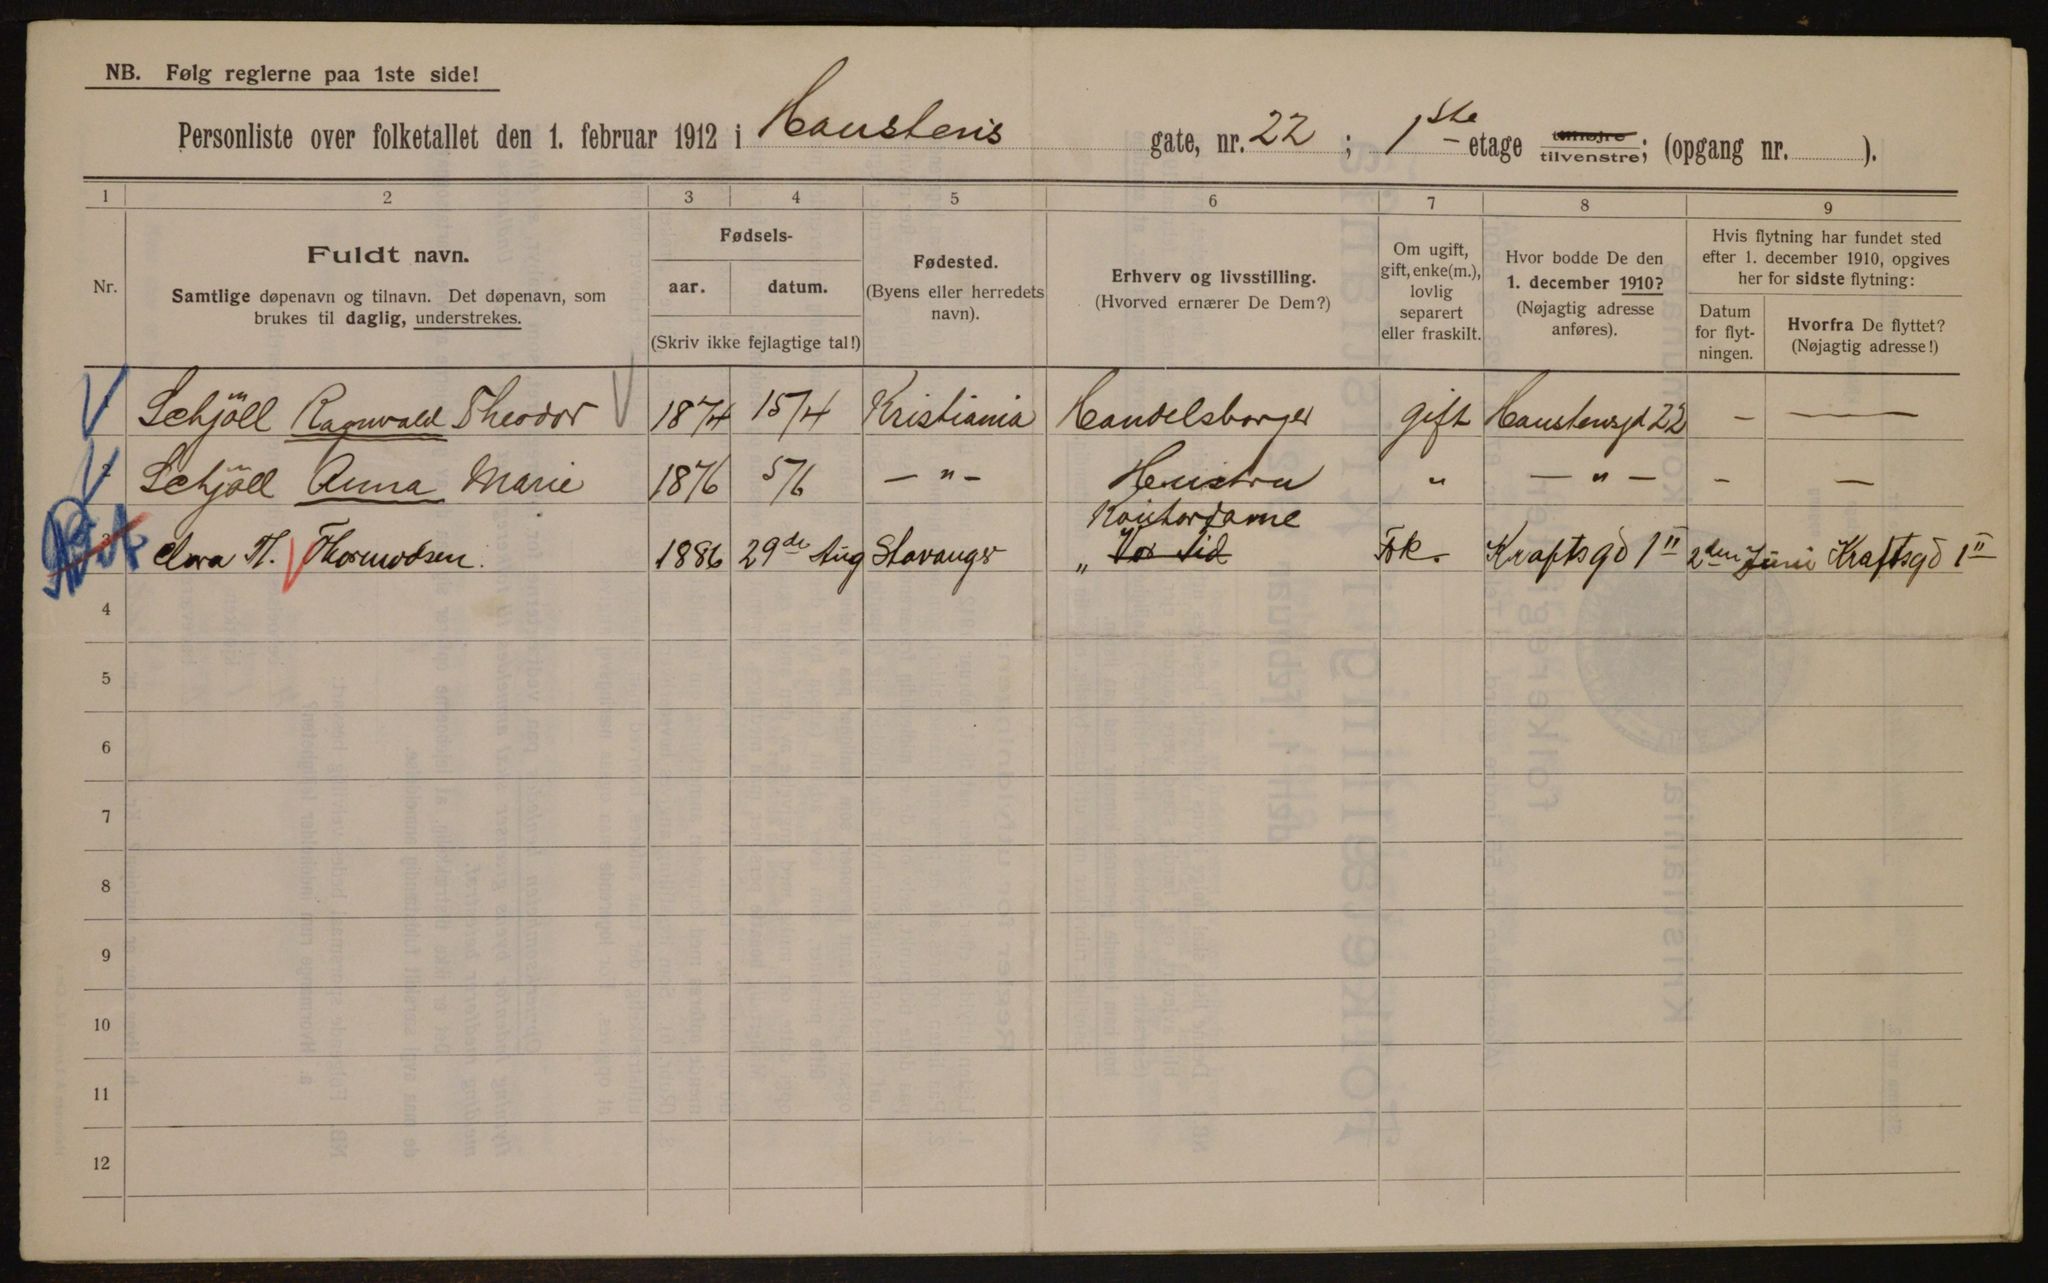 NB. Følg reglerne paa 1ste side!
Personliste over folketallet den 1. februar 1912 i Haustens gate, nr. 22 ; 1ste etage tilhøjre tilvenstre; (opgang nr. ).
1 2 3 4 5 6 7 8 9
Nr.
Fuldt navn.
Samtlige døpenavn og tilnavn. Det døpenavn, som
brukes til daglig, understrekes.
Fødsels-
aar. datum.
(Skriv ikke fejlagtige tal!)
Fødested.
(Byens eller herredets
navn).
Erhverv og livsstilling.
(Hvorved ernærer De Dem?)
Om ugift,
gift, enke(m.),
lovlig
separert
eller fraskilt.
Hvor bodde De den
1. december 1910?
(Nøjagtig adresse
anføres).
Hvis flytning har fundet sted
efter 1. december 1910, opgives
her for sidste flytning:
Datum
for flyt-
ningen.
Hvorfra De flyttet?
(Nøjagtig adresse!)
Schjöll Ragnvald Theodor 1874 15/4 Kristiania Handelsborger gift Haustensgd 22 - —
Schjöll Anna Marie 1876 5/6 — " — Hustru " — " — - —
Kontordame
3 Clara Th. Thormodsen. 1886 29de Aug Stavanger " Frk. Kraftsgd 1 II 2den Juni Kraftsgd 1 II
4
5
6
7
8
9
10
11
12